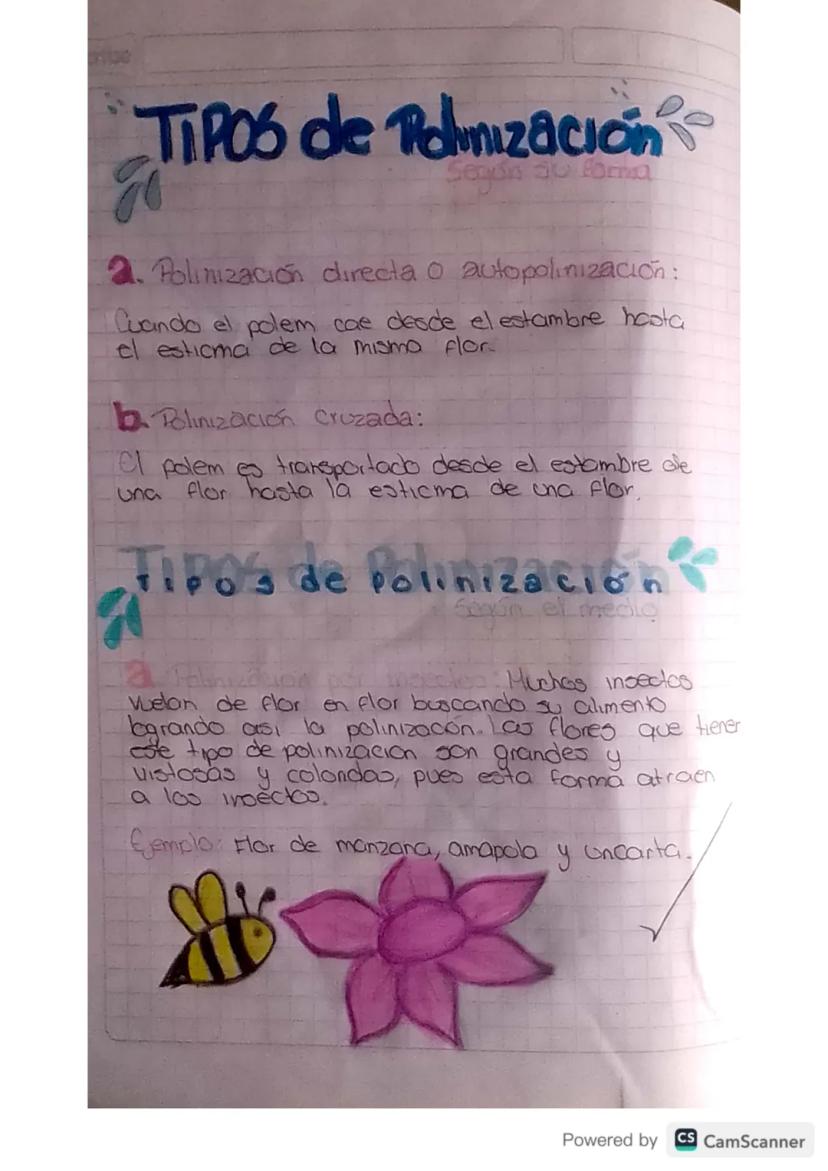 TIPOS de Polinización
Según su forma
a. Polinización directa o autopolinización:
Cuando el polem cae desde el estambre hasta
el esticma de la misma flor.
b. Polinización cruzada:
El polem es transportado desde el estambre de
una flor hasta la esticma de una flor.
Tipos de polinización
Según el medio
a. Polinización por insectos: Muchos insectos
vuelan de flor en flor buscando su alimento
logrando asi la polinización. Las flores que tienen
este tipo de polinización son grandes y
vistosas y coloridas, pues esta forma atraen
a los insectos.
Ejemplo: Flor de manzana, amapola y
Powered by CS CamScanner